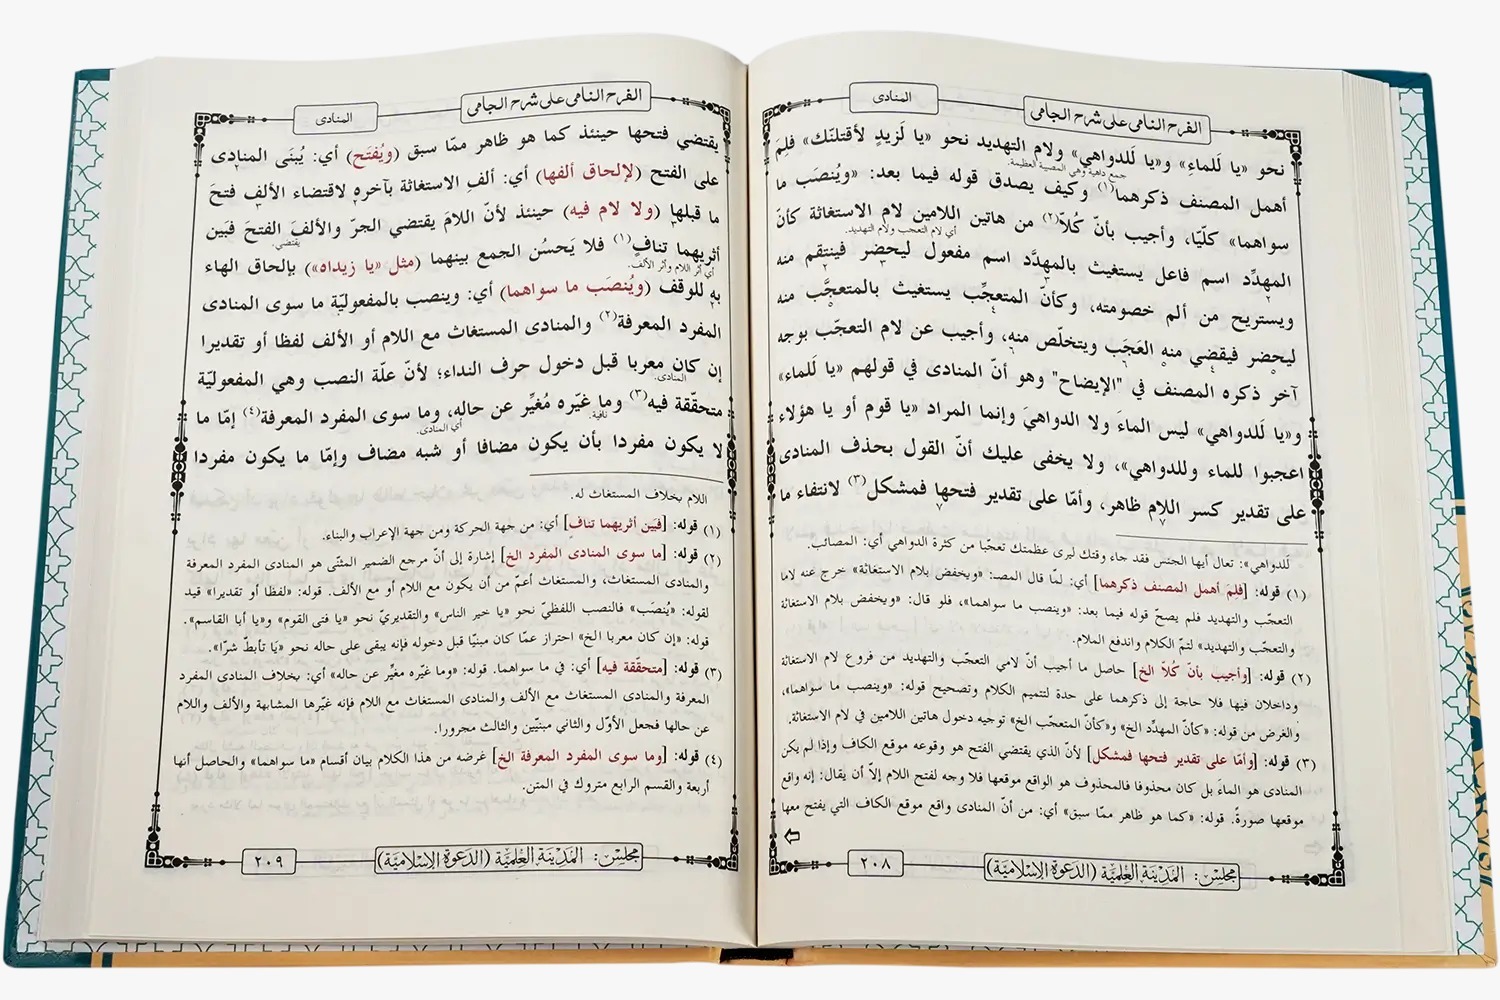 الفرح النامي على شرح الجامي
المنادى
نحو «يا لَلماءِ» و«يا لَلدواهي» ولام التهديد نحو «يا لَزيدٍ لأقتلنّك» فلِمَ
جمع داهية وهي المصيبة العظيمة.
أهمل المصنف ذكرهما(١) وكيف يصدق قوله فيما بعد: «ويُنصَب ما
سواهما» كلّيّا، وأجيب بأنّ كُلاًّ(٢) من هاتين اللامين لام الاستغاثة كأنّ
أي لام التعجب ولام التهديد.
المهدِّد اسم فاعل يستغيث بالمهدَّد اسم مفعول ليحضر فينتقم منه
ويستريح من ألم خصومته، وكأنّ المتعجِّب يستغيث بالمتعجَّب منه
ليحضر فيقضي منه العَجَب ويتخلّص منه، وأجيب عن لام التعجّب بوجه
آخر ذكره المصنف في "الإيضاح" وهو أنّ المنادى في قولهم «يا لَلماء»
و«يا لَلدواهي» ليس الماءَ ولا الدواهيَ وإنما المراد «يا قوم أو يا هؤلاء
اعجبوا للماء وللدواهي»، ولا يخفى عليك أنّ القول بحذف المنادى
على تقدير كسر اللام ظاهر، وأمّا على تقدير فتحها فمشكل(٣) لانتفاء ما
لَلدواهي»: تعال أيها الجنس فقد جاء وقتك ليرى عظمتك تعجّبا من كثرة الدواهي أي: المصائب.
(١) قوله: [فلِمَ أهمل المصنف ذكرهما] أي: لمّا قال المصـ: «ويخفض بلام الاستغاثة» خرج عنه لاما
التعجّب والتهديد فلم يصحّ قوله فيما بعد: «وينصب ما سواهما»، فلو قال: «ويخفض بلام الاستغاثة
والتعجّب والتهديد» لتمّ الكلام واندفع الملام.
(٢) قوله: [وأجيب بأنّ كُلاّ الخ] حاصل ما أجيب أنّ لامي التعجّب والتهديد من فروع لام الاستغاثة
وداخلان فيها فلا حاجة إلى ذكرهما على حدة لتتميم الكلام وتصحيح قوله: «وينصب ما سواهما»،
والغرض من قوله: «كأنّ المهدِّد الخ» و«كأنّ المتعجّب الخ» توجيه دخول هاتين اللامين في لام الاستغاثة.
(٣) قوله: [وأمّا على تقدير فتحها فمشكل] لأنّ الذي يقتضي الفتح هو وقوعه موقع الكاف وإذا لم يكن
المنادى هو الماءَ بل كان محذوفا فالمحذوف هو الواقع موقعها فلا وجه لفتح اللام إلاّ أن يقال: إنه واقع
موقعها صورةً. قوله: «كما هو ظاهر ممّا سبق» أي: من أنّ المنادى واقع موقع الكاف التي يفتح معها
مجلس: المدينة العلمية (الدعوة الإسلامية)
٢٠٨
الفرح النامي على شرح الجامي
المنادى
يقتضي فتحها حينئذ كما هو ظاهر ممّا سبق (ويُفتَح) أي: يُبنَى المنادى
على الفتح (لإلحاق ألفها) أي: ألفِ الاستغاثة بآخره لاقتضاء الألف فتحَ
ما قبلها (ولا لام فيه) حينئذ لأنّ اللامَ يقتضي الجرّ والألفَ الفتحَ فبَين
يقتضي.
أثريهما تنافٍ(١) فلا يَحسُن الجمع بينهما (مثل «يا زيداه») بإلحاق الهاء
أي أثر اللام وأثر الألف.
به للوقف (ويُنصَب ما سواهما) أي: وينصب بالمفعوليّة ما سوى المنادى
المفرد المعرفة(٢) والمنادى المستغاث مع اللام أو الألف لفظا أو تقديرا
إن كان معربا قبل دخول حرف النداء؛ لأنّ علّة النصب وهي المفعوليّة
المنادى.
متحقّقة فيه(٣) وما غيّره مُغيِّر عن حاله، وما سوى المفرد المعرفة(٤) إمّا ما
نافية.
أي المنادى.
لا يكون مفردا بأن يكون مضافا أو شبه مضاف وإمّا ما يكون مفردا
اللام بخلاف المستغاث له.
(١) قوله: [فبَين أثريهما تنافٍ] أي: من جهة الحركة ومن جهة الإعراب والبناء.
(٢) قوله: [ما سوى المنادى المفرد الخ] إشارة إلى أنّ مرجع الضمير المثنّى هو المنادى المفرد المعرفة
والمنادى المستغاث، والمستغاث أعمّ من أن يكون مع اللام أو مع الألف. قوله: «لفظا أو تقديرا» قيد
لقوله: «يُنصَب» فالنصب اللفظيّ نحو «يا خير الناس» والتقديريّ نحو «يا فتى القوم» و«يا أبا القاسم».
قوله: «إن كان معربا الخ» احتراز عمّا كان مبنيّا قبل دخوله فإنه يبقى على حاله نحو «يَا تأبطَ شرًّا».
(٣) قوله: [متحقّقة فيه] أي: في ما سواهما. قوله: «وما غيّره مغيِّر عن حاله» أي: بخلاف المنادى المفرد
المعرفة والمنادى المستغاث مع الألف والمنادى المستغاث مع اللام فإنه غيّرها المشابهة والألف واللام
عن حالها فجعل الأوّل والثاني مبنيّين والثالث مجرورا.
(٤) قوله: [وما سوى المفرد المعرفة الخ] غرضه من هذا الكلام بيان أقسام «ما سواهما» والحاصل أنها
أربعة والقسم الرابع متروك في المتن.
مجلس: المدينة العلمية (الدعوة الإسلامية)
٢٠٩